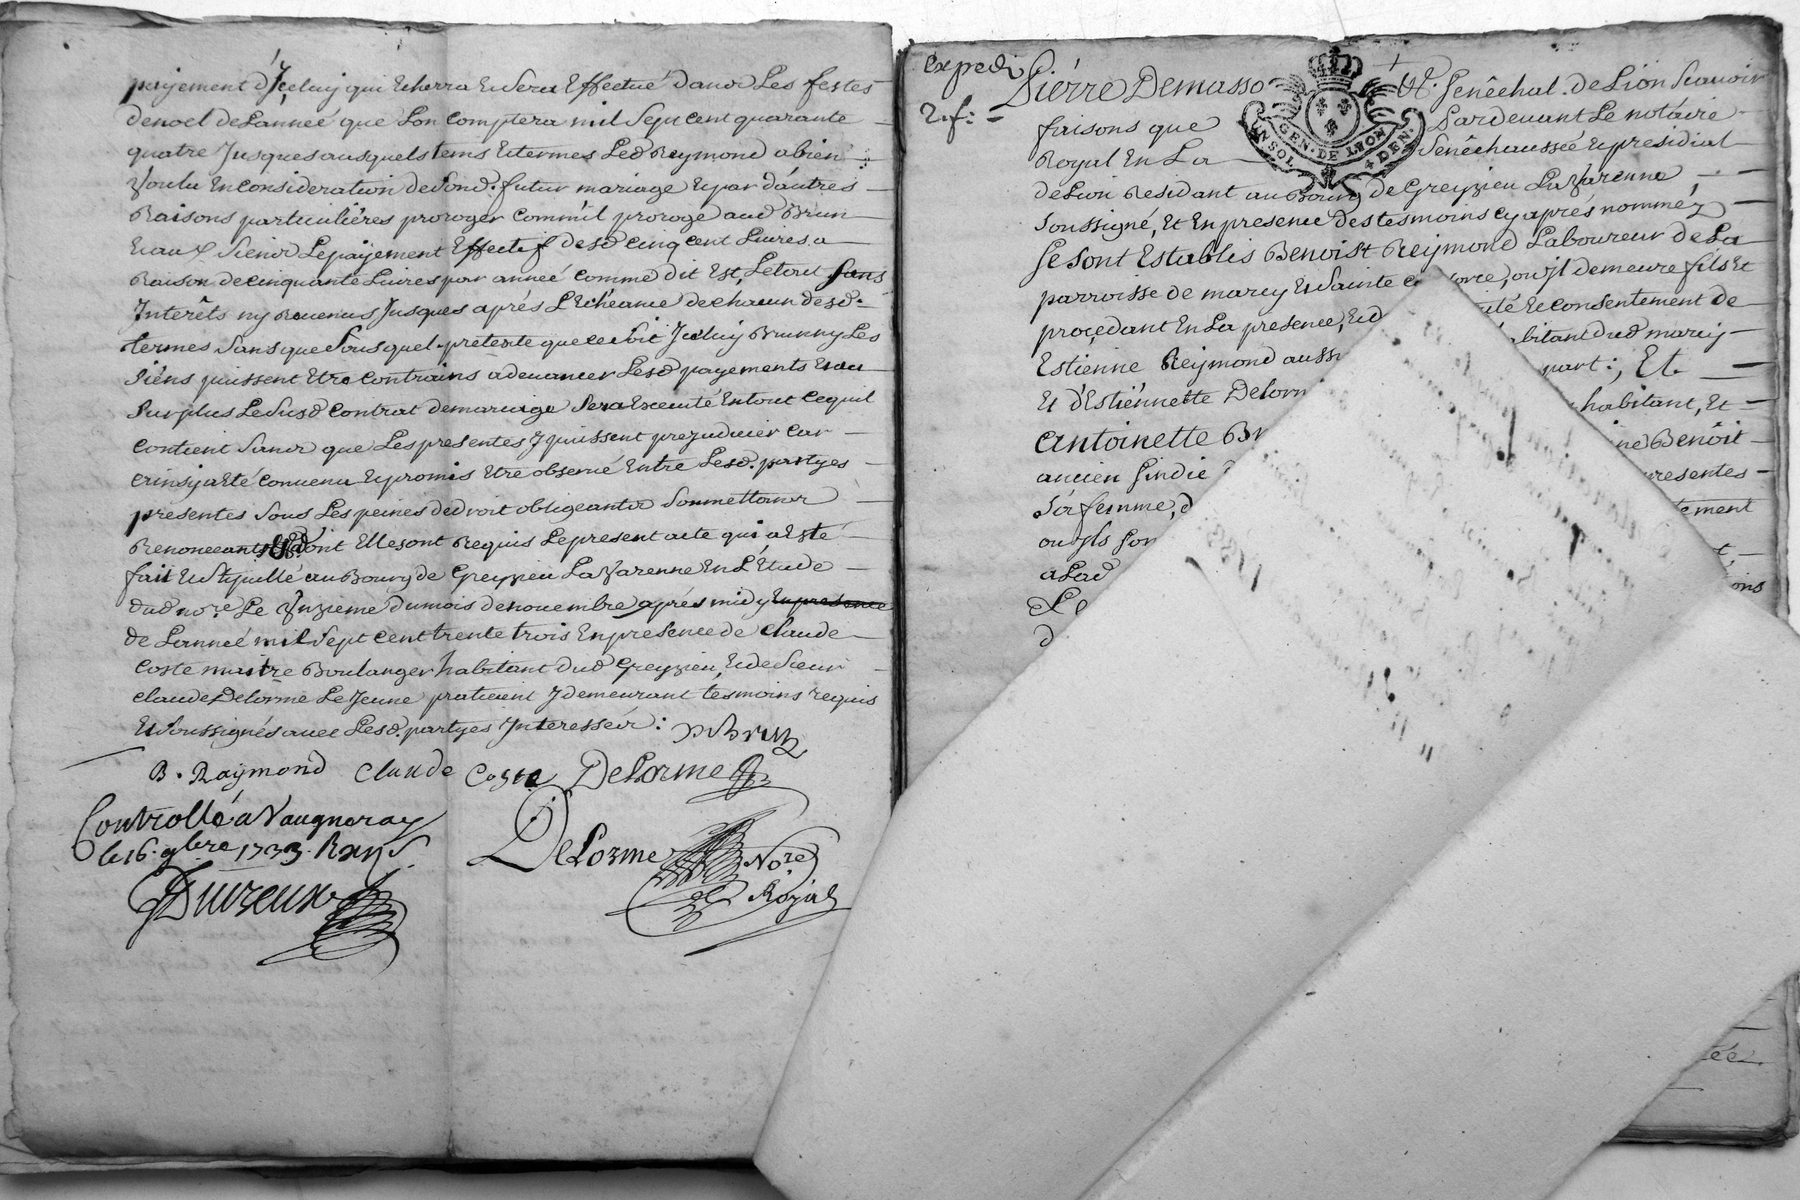 payement d'Jceluy qui Echerra En Sera Effectué dans Les festes
denoel deLanneé que Lon comptera mil Sept cent quarante
quatre Jusques ausquels tems Et termes Led Reymond a bien
Voulu En consideration de Sond. futur mariage Et par d'autres
Raisons particulières proroger comm'il proroge aud Brun
Et aux Siens Le payement Effectif desd cinq cent Livres a
Raison de cinquante Livres par anneé comme dit Est, Letout Sans
Interêts ny Revenus Jusques aprés L'Echéance de châcun desd.
termes Sans que Sous quel pretexte que ce Soit Jceluy Brun ny Les
Siéns puissent Etre contrains a devancer Lesd payements Et au
Surplus Le Susd contrat de mariage Sera Executé En tout ce quil
contient Sans que Les presentes y puissent prejudicier car
ainsy a Eté convenu Et promis Etre observé Entre Lesd. partyes
presentes Sous Les peines de droit obligeants Soumettants
Renonceants dont Elles ont Requis Le present acte qui a Esté
fait Et Stipullé au Bourg de Greyzieu La Varenne En L'Etude
dud nore. Le Vnzieme du mois de novembre aprés midy En presence
de Lanneé mil Sept cent trente trois En presence de claude
coste maitre Boulanger habitant dud Greyzieu, Et de Sieur
claude Delorme Le Jeune praticient y demeurant tesmoins requis
Et Soussignés avec Lesd. partyes Jnteressés:
Brun
B. Raymond Claude Coste DeLorme
Controllé a Vaugneray
le 16. 9bre 1733. Rx
DeLorme Nore
Royal
expedi
2 f:
Piérre Demasso
Senêchal de Lion Scavoir
faisons que
Pardevant Le notáire
Royal En La
Senêchausseé Et presidial
GEN. DE LYON
deLion Residant au Bourg de Greyzieu La Varenne
Soussigné, Et En presence des tesmoins cy aprés nommés
Se Sont Establis Benoist Reymond Laboureur de La
parroisse de marcy Et Sainte orce, ou jl demeure fils Et
proçédant En La presence, Et d ité Et consentement de
Estienne Reymond auss abitant dud marcy
Et d'Estiénnette Delorm part:, Et
habitant, Et
Antoinette Br ine Benôit
ancien Sindic resentes
Sa femme, d tement
ou jls Son
a Lad ons
Le
d
ée